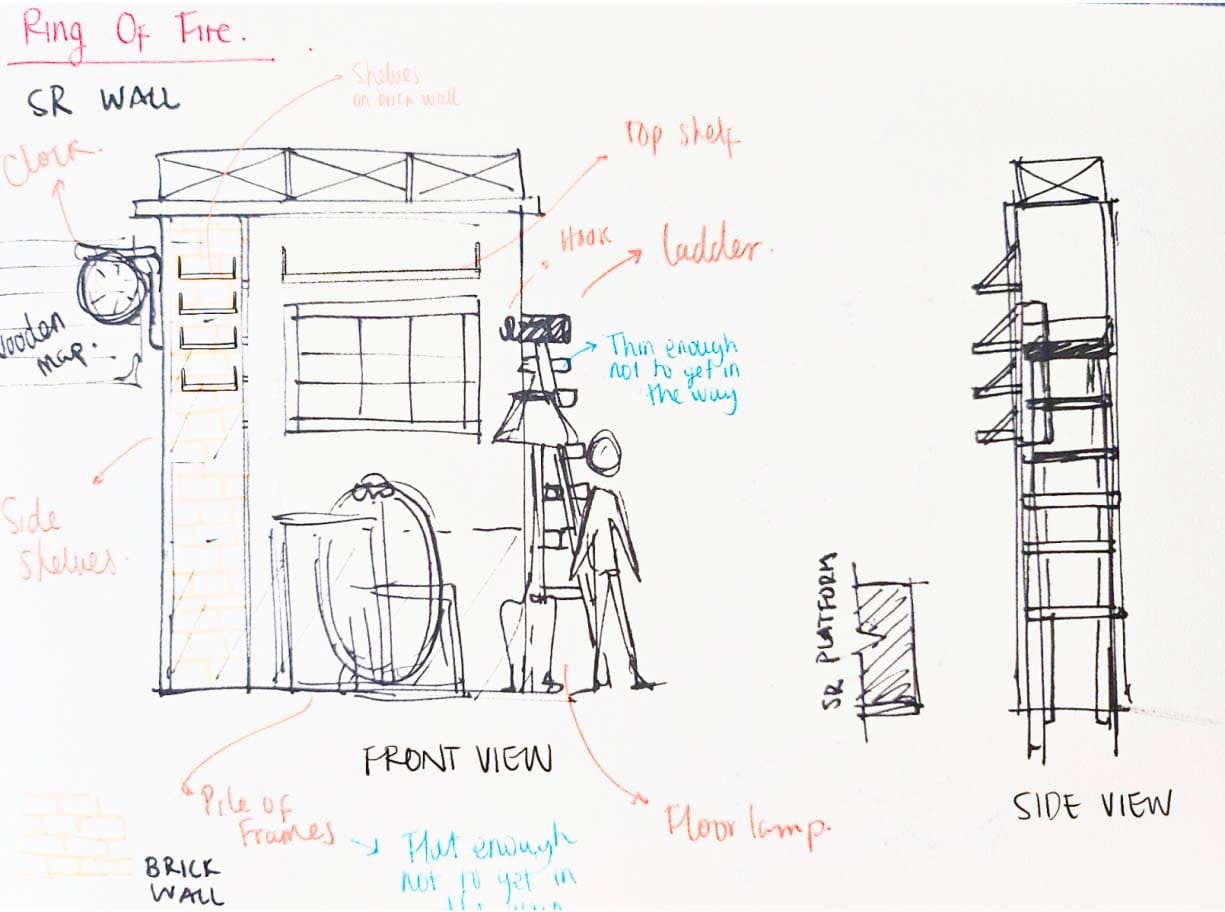 Ring Of Fire.
SR WALL
Shelves
on brick wall
Clock.
Top shelf
Hook
ladder.
wooden
map.
Thin enough
not to yet in
the way
Side
Shelves.
SR PLATFORM
FRONT VIEW
SIDE VIEW
Pile of
Frames
Floor lamp.
Flat enough
not to yet in
the way
BRICK
WALL